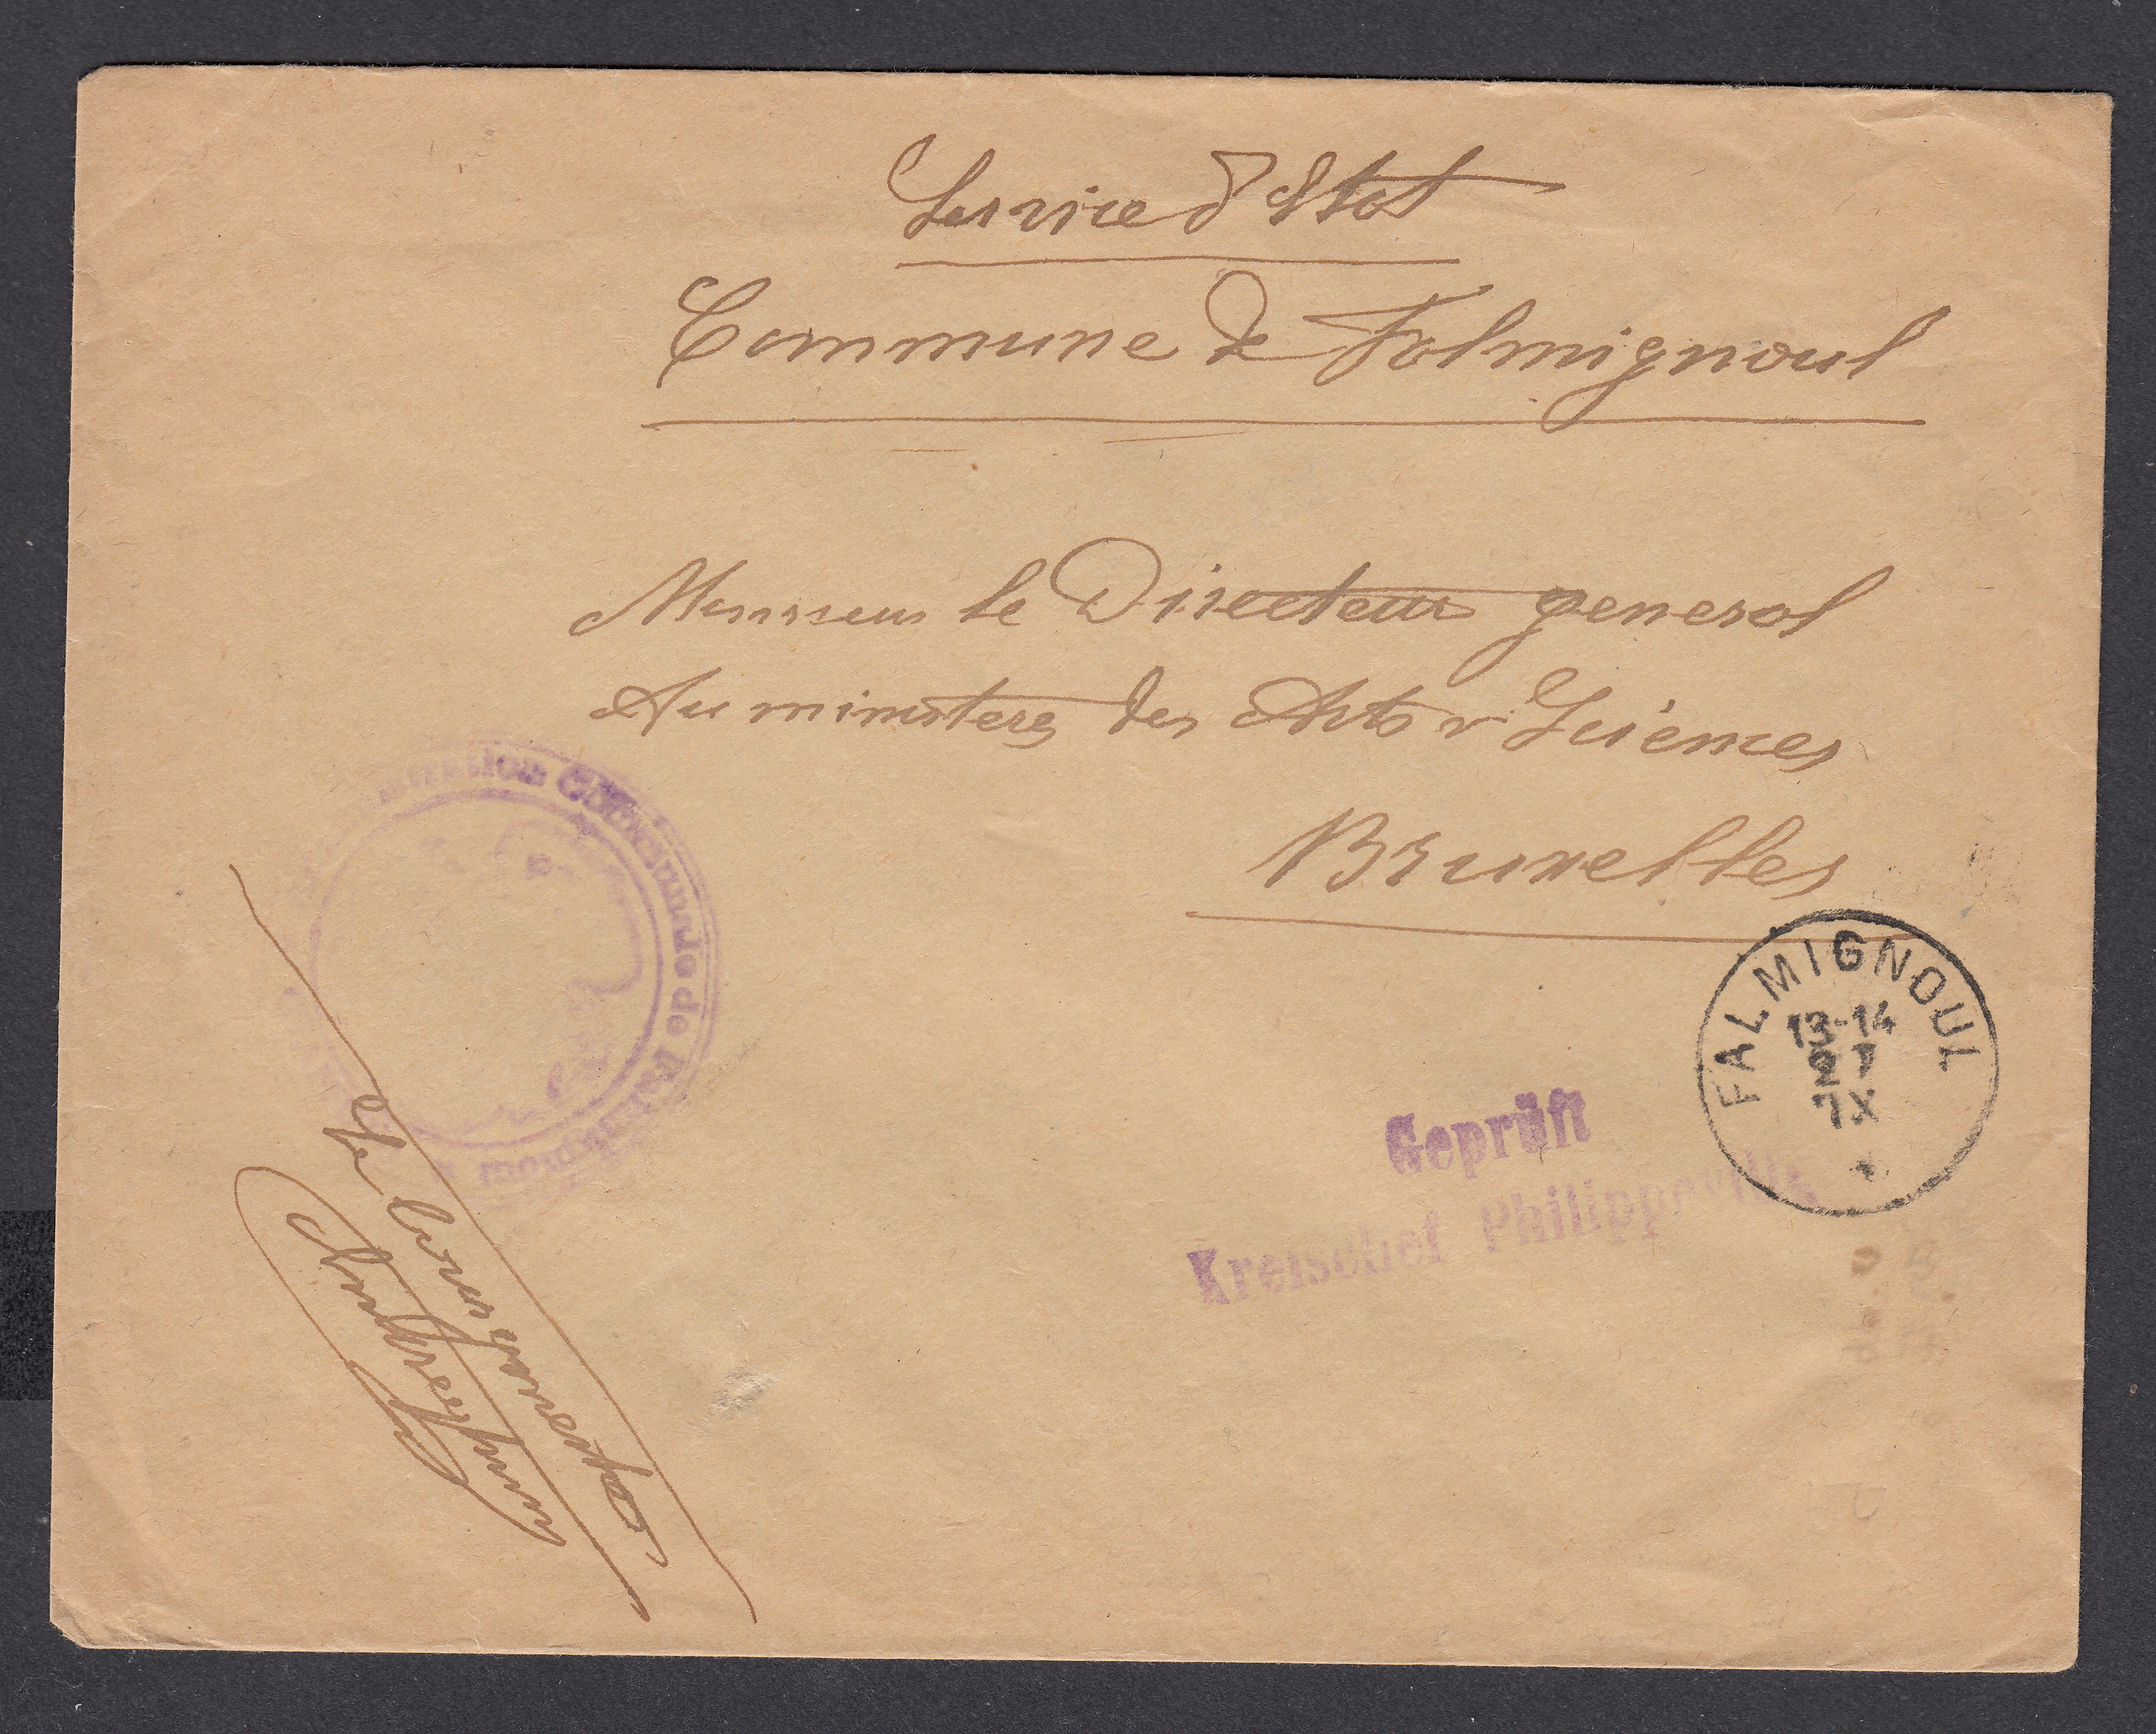 Service d'Etat
Commune de Falmignoul
Monsieur le Directeur general
Au ministere des Arts & Sciences
Bruxelles
Administration Communale de Falmignoul
FALMIGNOUL
13-14
27
IX
Geprüft
Kreischef Philippeville
Le bourgmestre